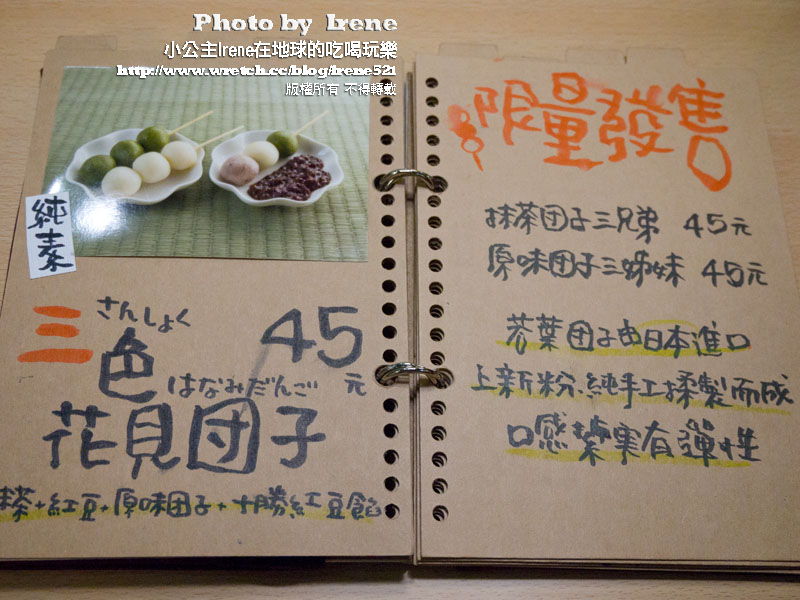 Photo by Irene
小公主Irene在地球的吃喝玩樂
http://www.wretch.cc/blog/irene521
版權所有 不得轉載
純素
さんしょく
三色
45元
はなみだんご
花見団子
抹茶+紅豆+原味団子+十勝紅豆餡
限量發售
抹茶団子三兄弟 45元
原味団子三姊妹 45元
若葉団子由日本進口
上新粉、純手工揉製而成
口感紮実有彈性